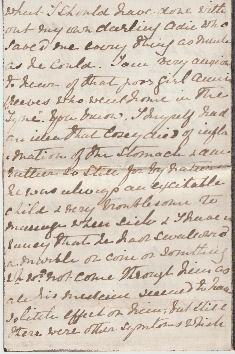 what I should have done with
out my own darling Adie who
saved me every thing as much
as he could. I am very anxious
to know of that poor girl Annie
Reeves who went home in the
Tyne. You know I myself had
an idea that Cosey died of infla
mation of the Stomach & am
rather so still for by nature
he was always an excitable
child & very troublesome to
manage when sick & I have a
fancy that he had swallowed
a marble or cone or something
wh. wd. not come through him as
all his medicine seemed to have
so little effect on him; but still
there were other symtoms which